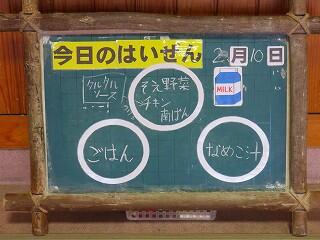 今日のはいぜん 2月10日
タルタル
ソース
そえ野菜
チキン
南ばん
MILK
ごはん
なめこ汁